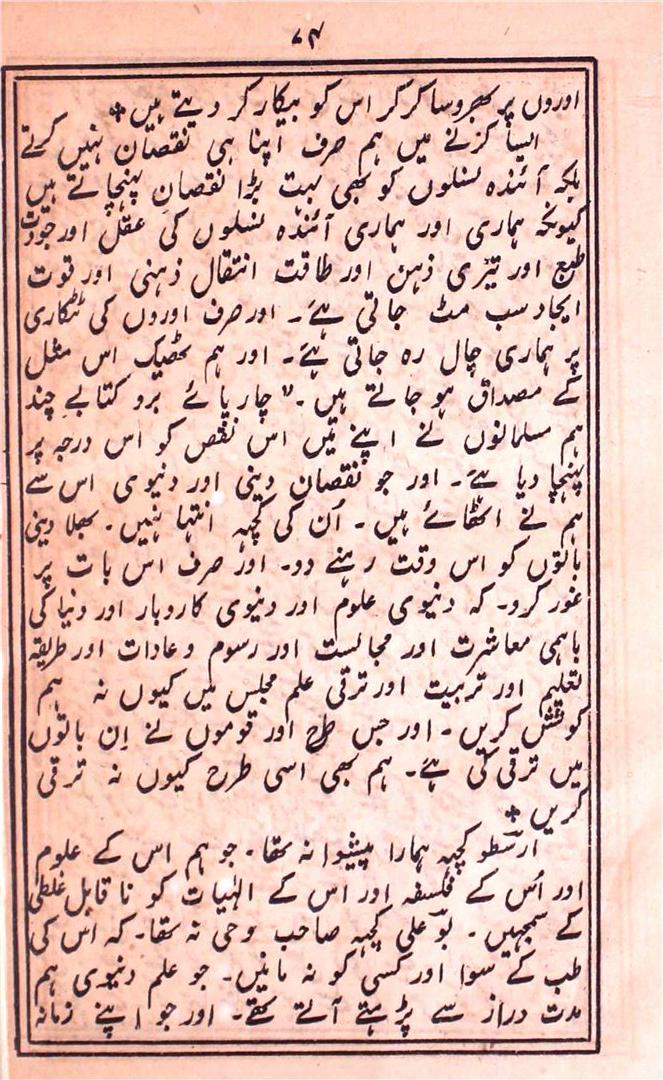 ۷۴
اوروں پر بھروسا کر کر اس کو بیکار کر دیتے ہیں*
ایسا کرنے میں ہم صرف اپنا ہی نقصان نہیں کرتے
بلکہ آئندہ نسلوں کو بھی بہت بڑا نقصان پہنچاتے ہیں
کیونکہ ہماری اور ہماری آئندہ نسلوں کی عقل اور جودت
طبع اور تیزی ذہن اور طاقت انتقال ذہنی اور قوت
ایجاد سب مٹ جاتی ہے۔ اور صرف اوروں کی ٹٹکاری
پر ہماری چال رہ جاتی ہے۔ اور ہم ٹھیک اس مثل
کے مصداق ہو جاتے ہیں۔ "چارپائے برو کتابے چند
ہم مسلمانوں نے اپنے تیں اس نقص کو اس درجہ پر
پہنچا دیا ہے۔ اور جو نقصان دینی اور دنیوی اس سے
ہم نے اٹھائے ہیں۔ اُن کی کچہہ انتہا نہیں۔ بھلا دینی
باتوں کو اس وقت رہنے دو۔ اور صرف اس بات پر
غور کرو۔ کہ دنیوی علوم اور دنیوی کاروبار اور دنیا کی
باہمی معاشرت اور مجالست اور رسوم و عادات اور طریقہ
تعلیم اور تربیت اور ترقی علم مجلس میں کیوں نہ ہم
کوشش کریں۔ اور جس طرح اور قوموں نے اِن باتوں
میں ترقی کی ہے۔ ہم بھی اسی طرح کیوں نہ ترقی
کریں*
ارسطو کچہہ ہمارا پیشوا نہ تھا۔ جو ہم اس کے علوم
اور اُس کے فلسفہ اور اس کے الٰہیات کو نا قابل غلطی
کے سمجہیں۔ بو علی کچہہ صاحب وحی نہ تھا۔ کہ اس کی
طب کے سوا اور کسی کو نہ مانیں۔ جو علم دنیوی ہم
مدت دراز سے پڑہتے آتے تھے۔ اور جو اپنے زمانہ